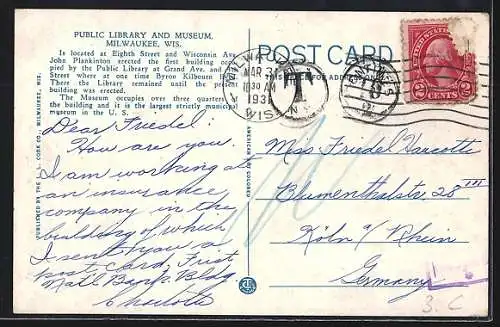 PUBLIC LIBRARY AND MUSEUM,
MILWAUKEE, WIS.
Is located at Eighth Street and Wisconsin Ave.
John Plankinton erected the first building occu-
pied by the Public Library at Grand Ave. and
Street where at one time Byron Kilbourn
the Library remained until the present
building was erected.
The Museum occupies over three quarters
the building and it is the largest strictly municipal
museum in the U. S.
Dear Friedel:
How are you.
I am working at
an insurance
company in the
building of which
I sent you a
post card, First
Nat'l Bank Bldg
Charlotte
PUBLISHED BY THE E. C. CO., MILWAUKEE, WIS.
AMERICAN ART COLORED
POST CARD
THIS SPACE FOR ADDRESS
MILWAUKEE
MAR
10 30 AM
1931
WIS.
T
UNITED STATES POSTAGE
2 CENTS 2
Miss Friedel Varcotti
Blumenthalstr. 23 III
Köln a/ Rhein
Germany
3. C